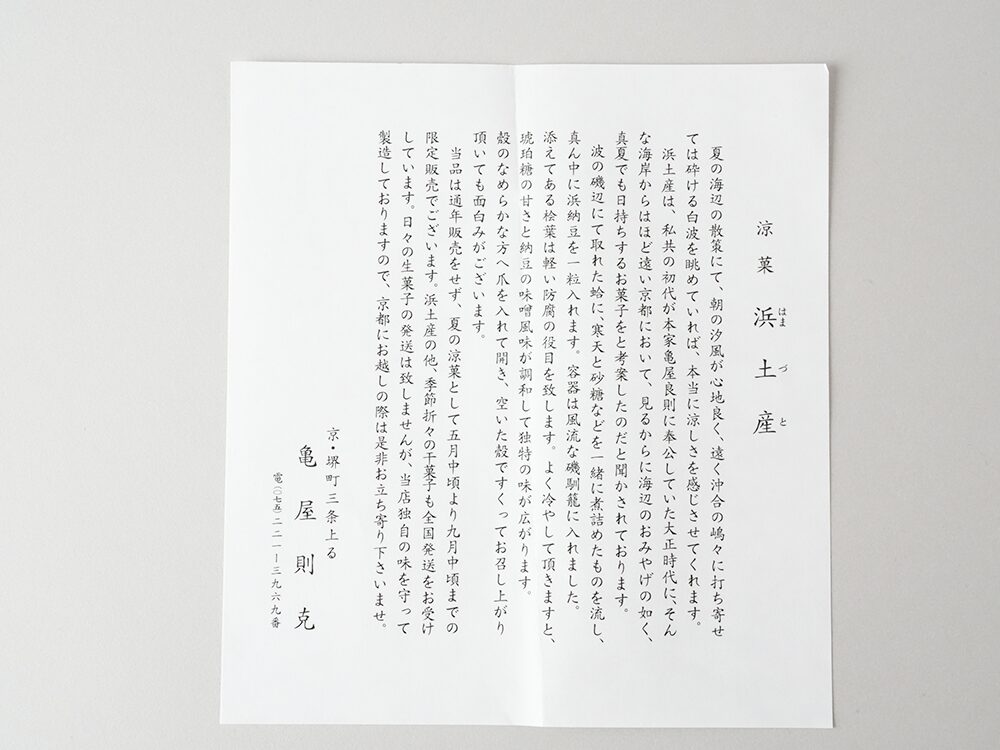 涼菓 浜土産
はまづと
夏の海辺の散策にて、朝の汐風が心地良く、遠く沖合の嶋々に打ち寄せ
ては砕ける白波を眺めていれば、本当に涼しさを感じさせてくれます。
浜土産は、私共の初代が本家亀屋良則に奉公していた大正時代に、そん
な海岸からはほど遠い京都において、見るからに海辺のおみやげの如く、
真夏でも日持ちするお菓子をと考案したのだと聞かされております。
波の磯辺にて取れた蛤に、寒天と砂糖などを一緒に煮詰めたものを流し、
真ん中に浜納豆を一粒入れます。容器は風流な磯馴籠に入れました。
添えてある桧葉は軽い防腐の役目を致します。よく冷やして頂きますと、
琥珀糖の甘さと納豆の味噌風味が調和して独特の味が広がります。
殻のなめらかな方へ爪を入れて開き、空いた殻ですくってお召し上がり
頂いても面白みがございます。
当品は通年販売をせず、夏の涼菓として五月中頃より九月中頃までの
限定販売でございます。浜土産の他、季節折々の干菓子も全国発送をお受け
しています。日々の生菓子の発送は致しませんが、当店独自の味を守って
製造しておりますので、京都にお越しの際は是非お立ち寄り下さいませ。
京・堺町三条上る
亀屋則克
電(〇七五)二二一ー三九六九番